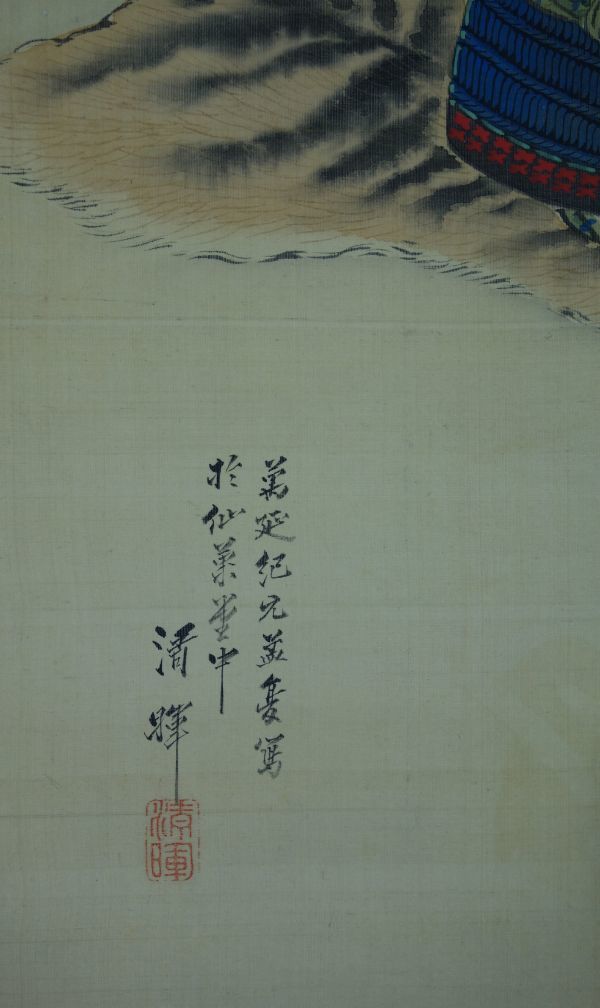 萬延紀元孟夏寫
於仙葉堂中
清暉
清暉